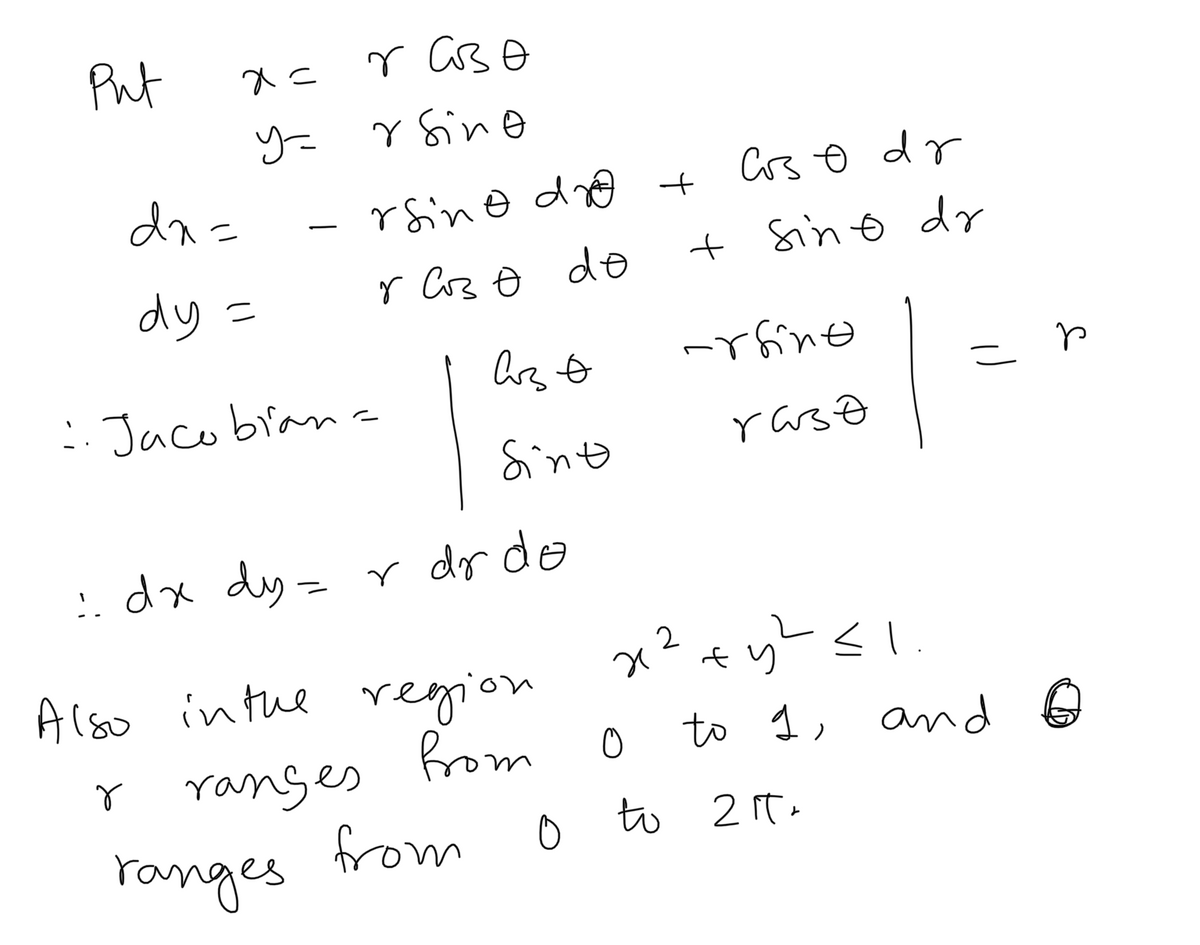 Put x = r Cos θ
y = r Sin θ
dx = - r Sin θ dθ + Cos θ dr
dy = r Cos θ dθ + Sin θ dr
∴ Jacobian = | Cos θ -r Sin θ | = r
| Sin θ r Cos θ |
∴ dx dy = r dr dθ
Also in the region x² + y² ≤ 1.
r ranges from 0 to 1, and θ
ranges from 0 to 2π.